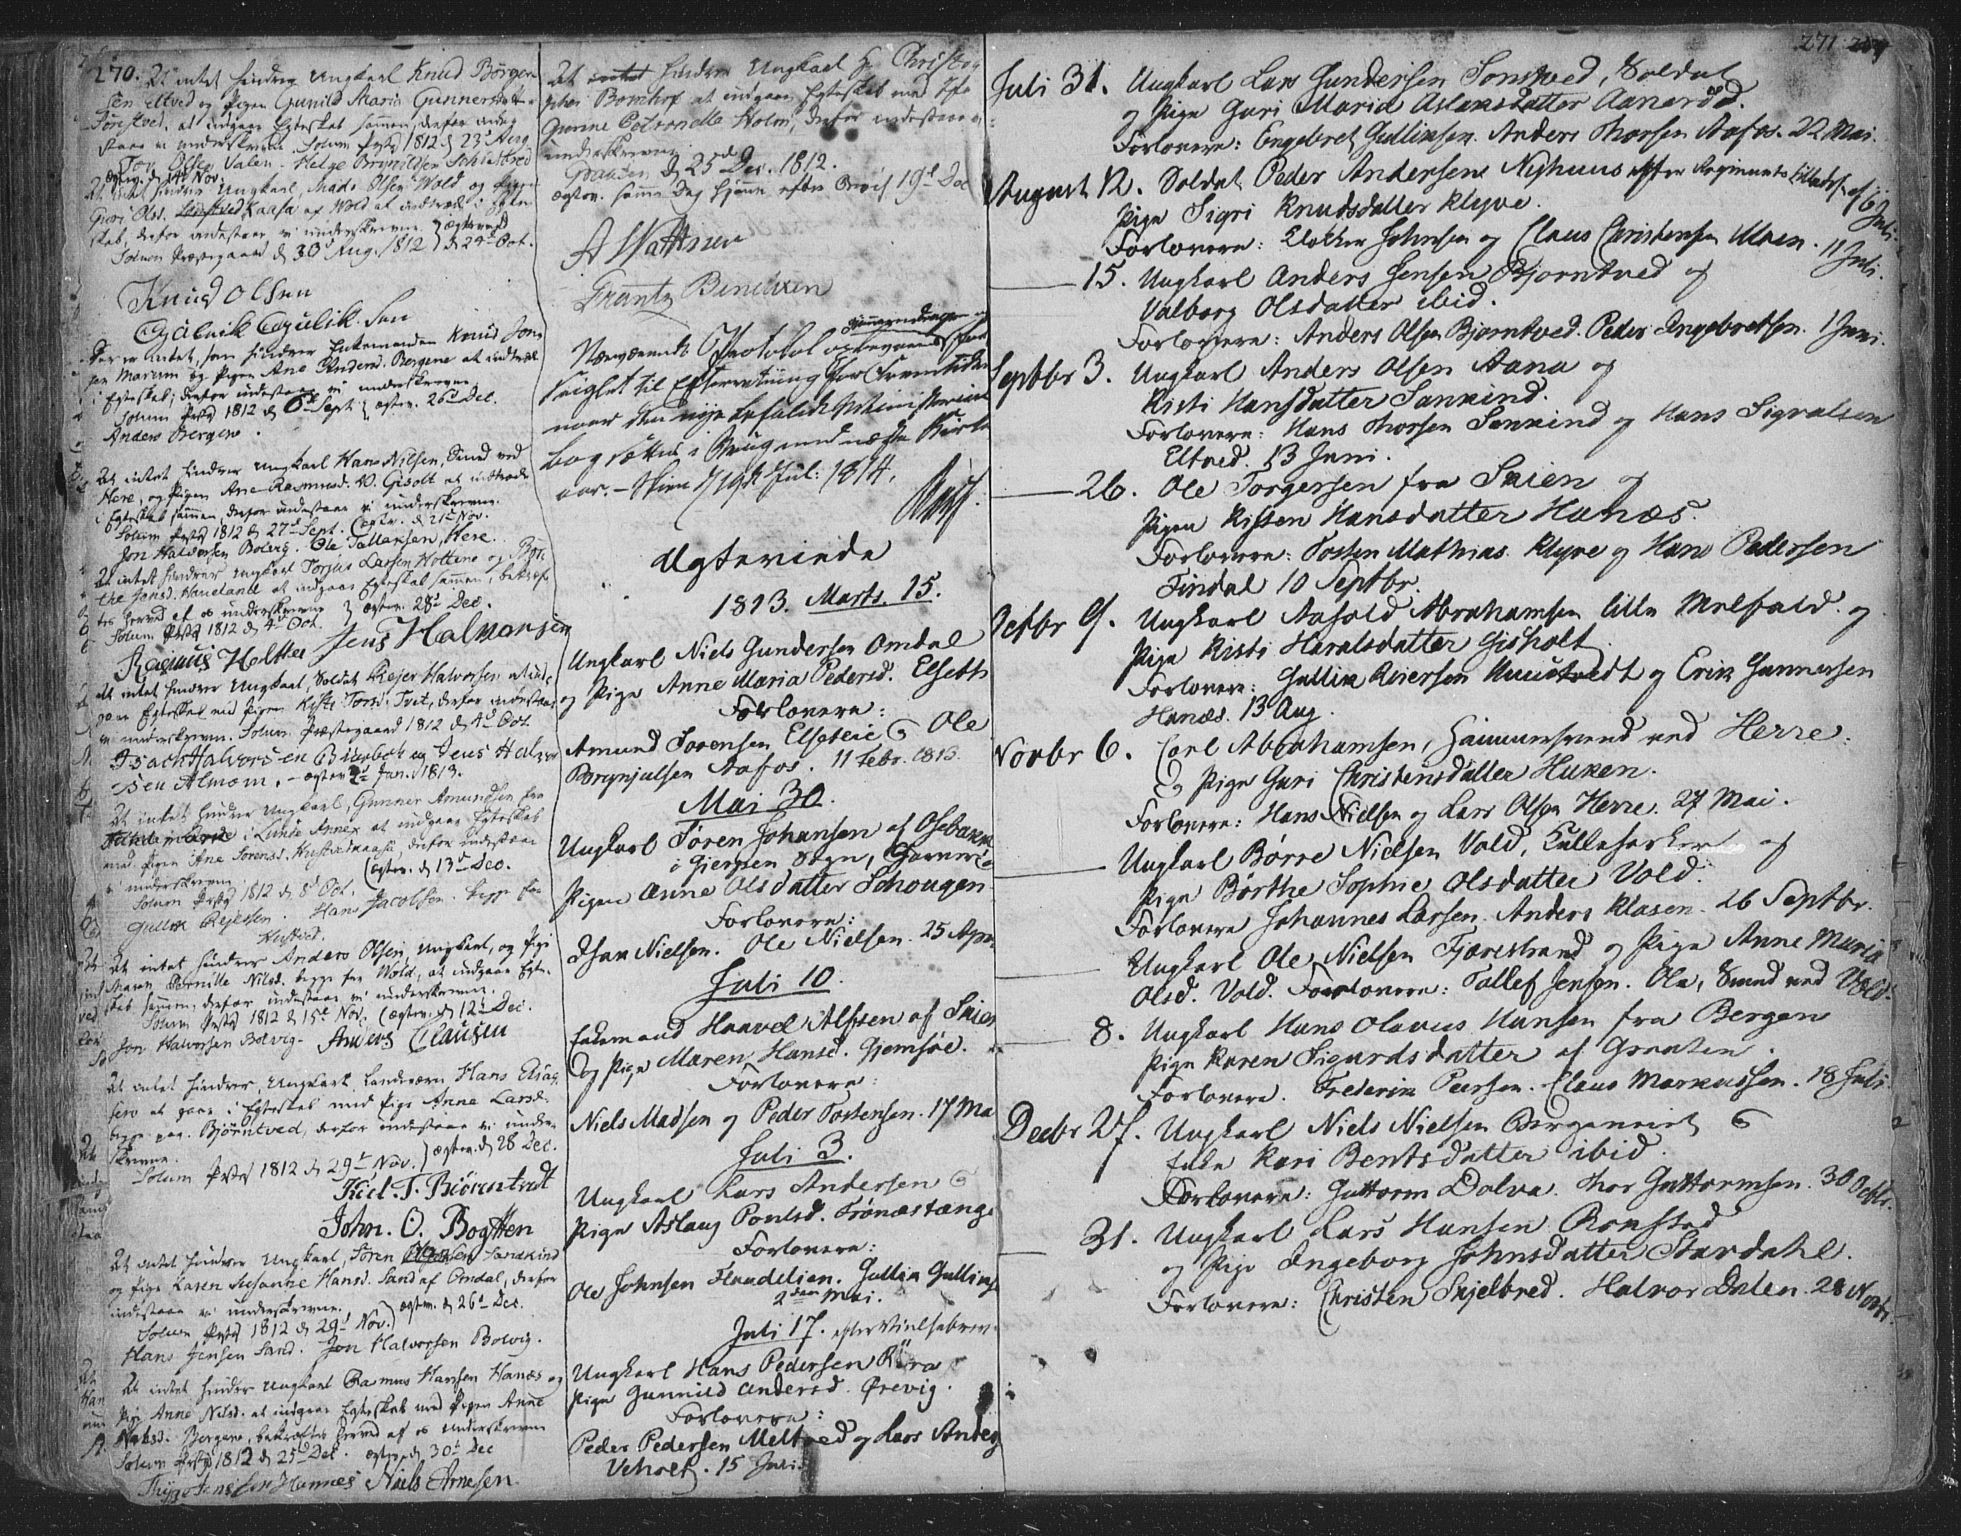 270. Det intet hindrer Ungkarl Knud Børgen
sen Eltved og Pigen Gunild Maria Gunnersdatter
Tønstved, at indgaae Egteskab sammen, derfor indeg
staae vi underskrevne. Solum Præstgd 1812 d 23d Aug.
Jon Olsen Valen. Helge Bryndilsen
egtev. d 14 Nov.
Det intet hindrer Ungkarl, Mads Olsen Wold og Pigen
Guri Olsd. Kaasa af Wold at indtræde i Egte
skab, derfor indestaae vi underskrevne. egteviet
Solum Præstegaard d 30d Aug. 1812 d 24de Oct.
Knud Olsen
Gjulvik
Der er intet, som hindrer Enkemanden Knud Jon
sen Marum og Pigen Ane Anders. Bergene at indtræde
i Egteskab; derfor indestaae vi underskrevne
Solum Præstgd 1812 d 6d Sept. egtev. 26d Dec.
Anders Bergene.
Det intet hindrer Ungkarl Hans Nilsen, Smed ved
Herre, og Pigen Ane Rasmusd. Gisolt at indtræde
i Egteskab sammen, derfor indestaae vi underskrevne.
Solum Præstgd 1812 d 27d Sept. egtv. d 21d Nov.
Jon Halvorsen Bolvig. Ole Tallaksen, Herre.
Det intet hindrer Ungkarl Torjus Larsen Holtene og Bir
the Jonsd. Haneland at indgaae Egteskab sammen, bekræf
tes herved af os underskrevne egtev. 28d Dec.
Solum Præstgd 1812 d 4d Oct.
Rasmus Holtte Jens Halvorsen
Det intet hindrer Ungkarl, Soldat Rejer Halvorsen at ind
gaae Egteskab med Pigen Kisti Torsd. Tvet, derfor indestaae
vi underskrevne. Solum Præstegaard 1812 d 4d Oct.
Isach Halvorsen Bierbech og Jens Halvor
sen Almom. egtev 2d Jan. 1813.
Det intet hindrer Ungkarl, Gunner Amundsen fra
i Lunde Annex at indgaae Egteskab
med Pigen Ane Sorensd. derfor indestaae
vi underskrevne. egtev. d 13d Dec.
Solum Præstgd 1812 d 8d Oct.
Gullik Rejersen. Hans Jacobsen. begge fra
Det intet hindrer Anders Olsen, Ungkarl, og Pige
Maren Pernille Nilsd. begge fra Wold, at indgaae Egte
skab sammen, derfor indestaae vi underskrevne.
Solum Præstgd 1812 d 15d Nov. egtev. d 12d Dec.
Jon Halvorsen Bolvig. Anders Clausen
Det intet hindrer, Ungkarl, Landværn Hans Eisag
sen at gaae i Egteskab med Pige Anne Larsd.
begge paa Bjørntved, derfor indestaae vi under
skrevne.
Solum Præstgd 1812 d 29d Nov. egtev. d 28 Dec.
Kiel. T. Biörentvdt
John. O. Bogtten
Det intet hindrer Ungkarl, Søren Sandkind
og Pige Karen Susanne Hansd. Sand af Omdal, derfor
indestaae vi underskrevne.
Solum Præstgd 1812 d 29d Nov. egtev. d 26d Dec.
Hans Jensen Sand. Jon Halvorsen Bolvig.
Det intet hinder Ungkarl Rasmus Hansen Hanæs og
Pige Anne Nilsd. at indgaae Egteskab med Pigen Anne
Bergene, bekræftes herved af os underskrevne
Solum Præstgd 1812 d 25d Oct. egtev. d 30d Dec
Hannæs Niels Arnesen.
Det intet hindrer Ungkarl Hr Christo
pher Bomhof at indgaae Egteskab med Jfr
Gurine Petronelle Holm, derfor indestaae vi
underskrevne.
Graaten d 25d Dec. 1812.
egtev. samme Dag hjemme efter Brev 19d Dec
A Wattner
Frantz Benditxen
Nærværende Protokol gjennemdragen og
opbevares
til Efterretning for Fremtiden
naar den nye befalede Ministerial
bog sættes i Brug med næste Kirke
aar. – Skien d 19de Jul: 1814.
Ægteviede
1813. Marts. 15.
Ungkarl Niels Gundersen Omdal
og Pige Anne Maria Pedersd. Elseth
Forlovere:
Amund Sørensen Elseteie og Ole
Brynjulsen Aafos. 11 Febr. 1813.
Mai 30.
Ungkarl Søren Johansen af Osebakke
i Gjerpen Sogn,
Pigen Anne Olsdatter Schougen
Forlovere:
Isak Nielsen. Ole Nielsen. 25 Apr.
Juli 10.
Enkemand Haavel Alfsen af Skien
og Pige Maren Hansd. Gjemsøe.
Forlovere:
Niels Madsen og Peder Tostensen. 17 Mai
Juli 3.
Ungkarl Lars Andersen og
Pige Aslaug Poulsd. Trønæstange
Forlovere:
Ole Johnsen Flaudelien. Gullik Gulliks
2den Mai.
Juli 17. efter Vielsebrev.
Ungkarl Hans Pedersen Røra
Pige Gunnild Andersd. Ørevig.
Forlovere:
Peder Pedersen Meltved og Lars Anders
Veholt. 15 Juni.
271
Juli 31. Ungkarl Lars Gundersen Tonsved, Soldat
og Pige Guri Maria Aslaksdatter Aanerød.
Forlovere: Engebret Gulliksen. Anders Thorsen Aafos. 22 Mai.
August 12. Soldat Peder Andersens Nyhuus efter Regiments Tilladelse af 6 Juli
Pige Sigri Knudsdatter Klyve.
Forlovere: Klokker Johnsen og Claus Christensen Moen. 11 Juli.
15. Ungkarl Anders Jensen Bjorntved og
Valborg Olsdatter ibid.
Forlovere: Anders Olsen Bjorntved. Peder Ingebretsen. 1 Juni.
Septbr 3. Ungkarl Anders Olsen Aana og
Kisti Hansdatter Sankind.
Forlovere: Hans Thorsen Sankind og Hans Sigvalsen
Eltved. 13 Juni.
26. Ole Torgersen fra Skien og
Pigen Kisten Hansdatter Hanæs.
Forlovere: Tosten Mathias. Klyve og Hans Pedersen
Findal 10 Septbr.
Octbr 9. Ungkarl Aasold Abrahamsen lille Melfald og
Pige Kisti Haralsdatter Gisholt
Forlovere: Gullik Reiersen og Erik Gunnersen
Hanæs. 13 Aug.
Novbr 6. Carl Abrahamsen, Hammersmed ved Herre:
og Pige Guri Christensdatter Huken.
Forlovere: Hans Nielsen og Lars Olsen Herre. 27 Mai.
Ungkarl Børre Nielsen Vold, og
Pige Børthe Sophie Olsdatter Vold.
Forlovere Johannes Larsen. Anders Klasen. 26 Septbr.
Ungkarl Ole Nielsen Fjærestrand og Pige Anne Maria
Olsd. Vold. Forlovere: Tallef Jensen. Ole, Smed ved Vold.
8. Ungkarl Hans Olavus Hansen fra Bergen
Pige Karen Sigurdsdatter af Graaten.
Forlovere. Frederik Peersen. Claus Markussen. 18 Juli.
Decbr 27. Ungkarl Niels Nielsen Bergenseie og
Enke Kari Bentsdatter ibid.
Forlovere: Guttorm Dolva. Thor Guttormsen. 30 Octbr.
31. Ungkarl Lars Hansen Ronstad
og Pige Ingeborg Johnsdatter Stordahl.
Forlovere: Christen Skjelbred. Halvor Dalen. 28 Novbr.